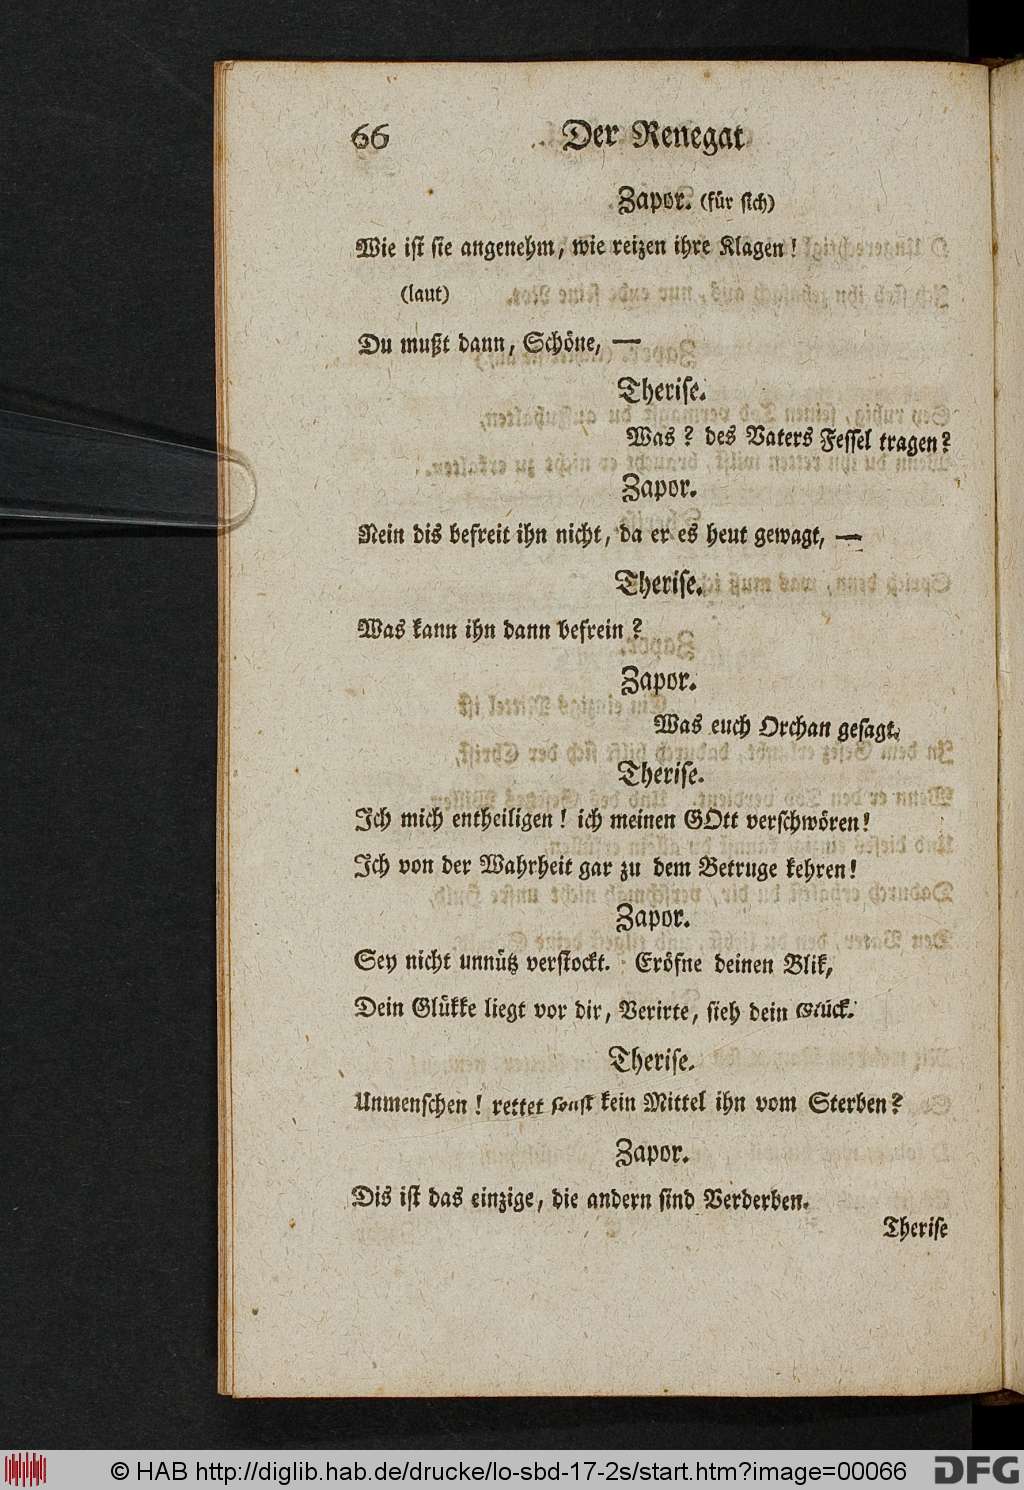 66 Der Renegat
Zapor. (für sich)
Wie ist sie angenehm, wie reizen ihre Klagen!
(laut)
Du mußt dann, Schöne, —
Therise.
Was? des Vaters Fessel tragen?
Zapor.
Nein dis befreit ihn nicht, da er es heut gewagt, —
Therise.
Was kann ihn dann befrein?
Zapor.
Was euch Orchan gesagt.
Therise.
Ich mich entheiligen! ich meinen GOtt verschwören!
Ich von der Wahrheit gar zu dem Betruge kehren!
Zapor.
Sey nicht unnütz verstockt. Eröfne deinen Blik,
Dein Glükke liegt vor dir, Verirte, sieh dein Glück.
Therise.
Unmenschen! rettet sonst kein Mittel ihn vom Sterben?
Zapor.
Dis ist das einzige, die andern sind Verderben.
Therise
© HAB http://diglib.hab.de/drucke/lo-sbd-17-2s/start.htm?image=00066 DFG